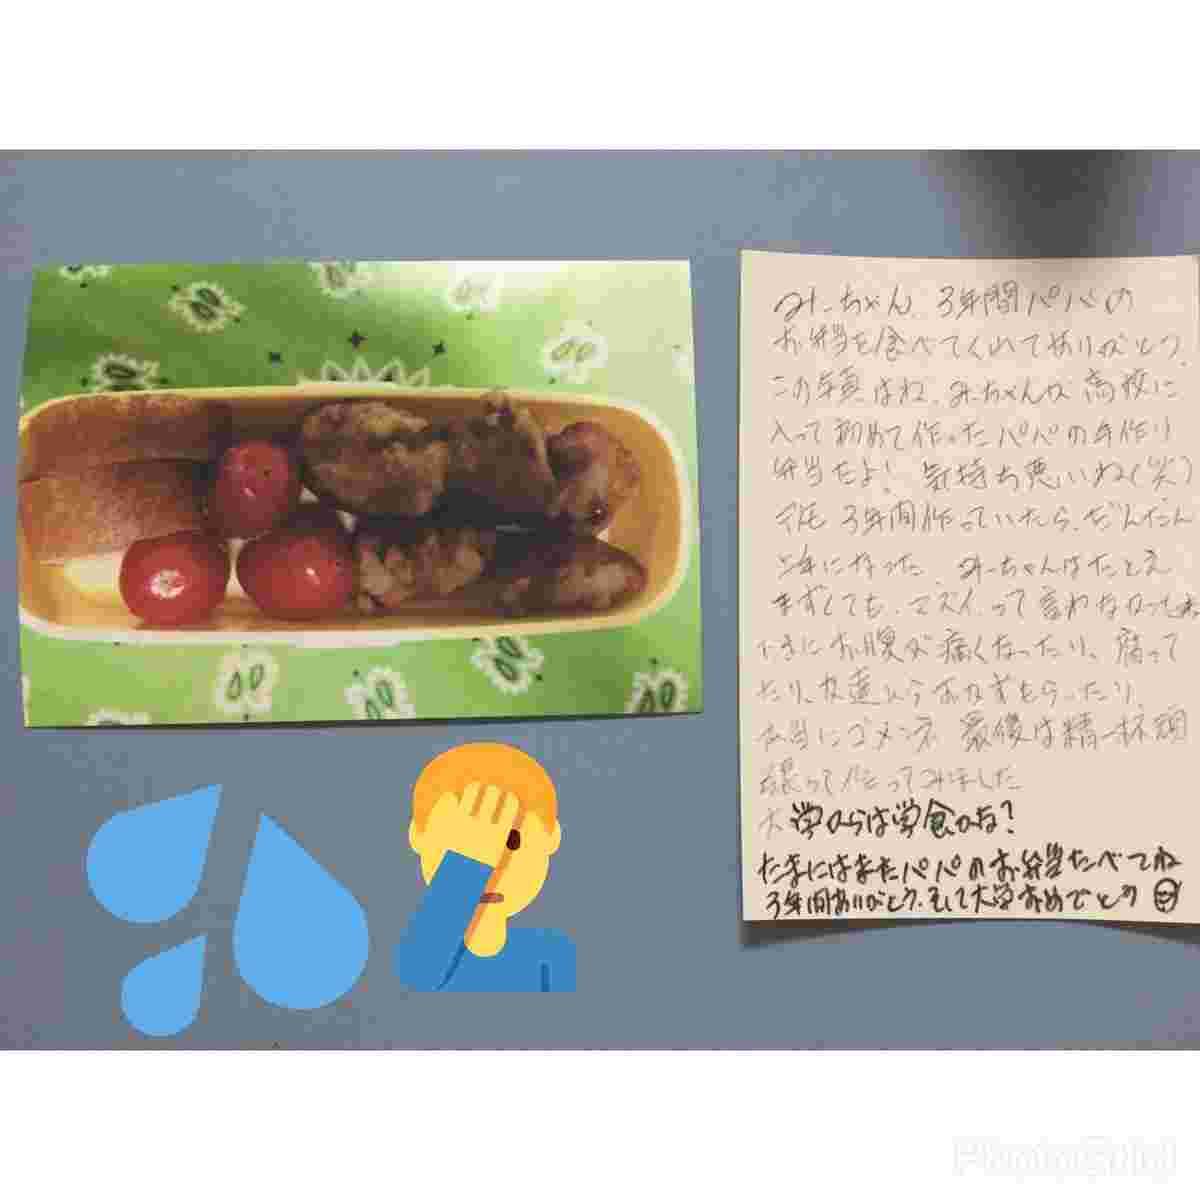 みーちゃん、3年間パパの
お弁当を食べてくれてありがとう。
この写真はね、みーちゃんが高校に
入って初めて作ったパパの手作り
弁当だよ！気持ち悪いね(笑)
でも3年間作っていたら、だんだん
上手になった。みーちゃんはたとえ
まずくても、マズイって言わなかった
ときにお腹が痛くなったり、腐って
たり、友達からおかずもらったり、
本当にゴメンネ 最後は精一杯頑
張って作ってみました
大学からは学食かな？
たまにはまたパパのお弁当たべてね
3年間ありがとう、そして大学おめでとう
PhotoGrid